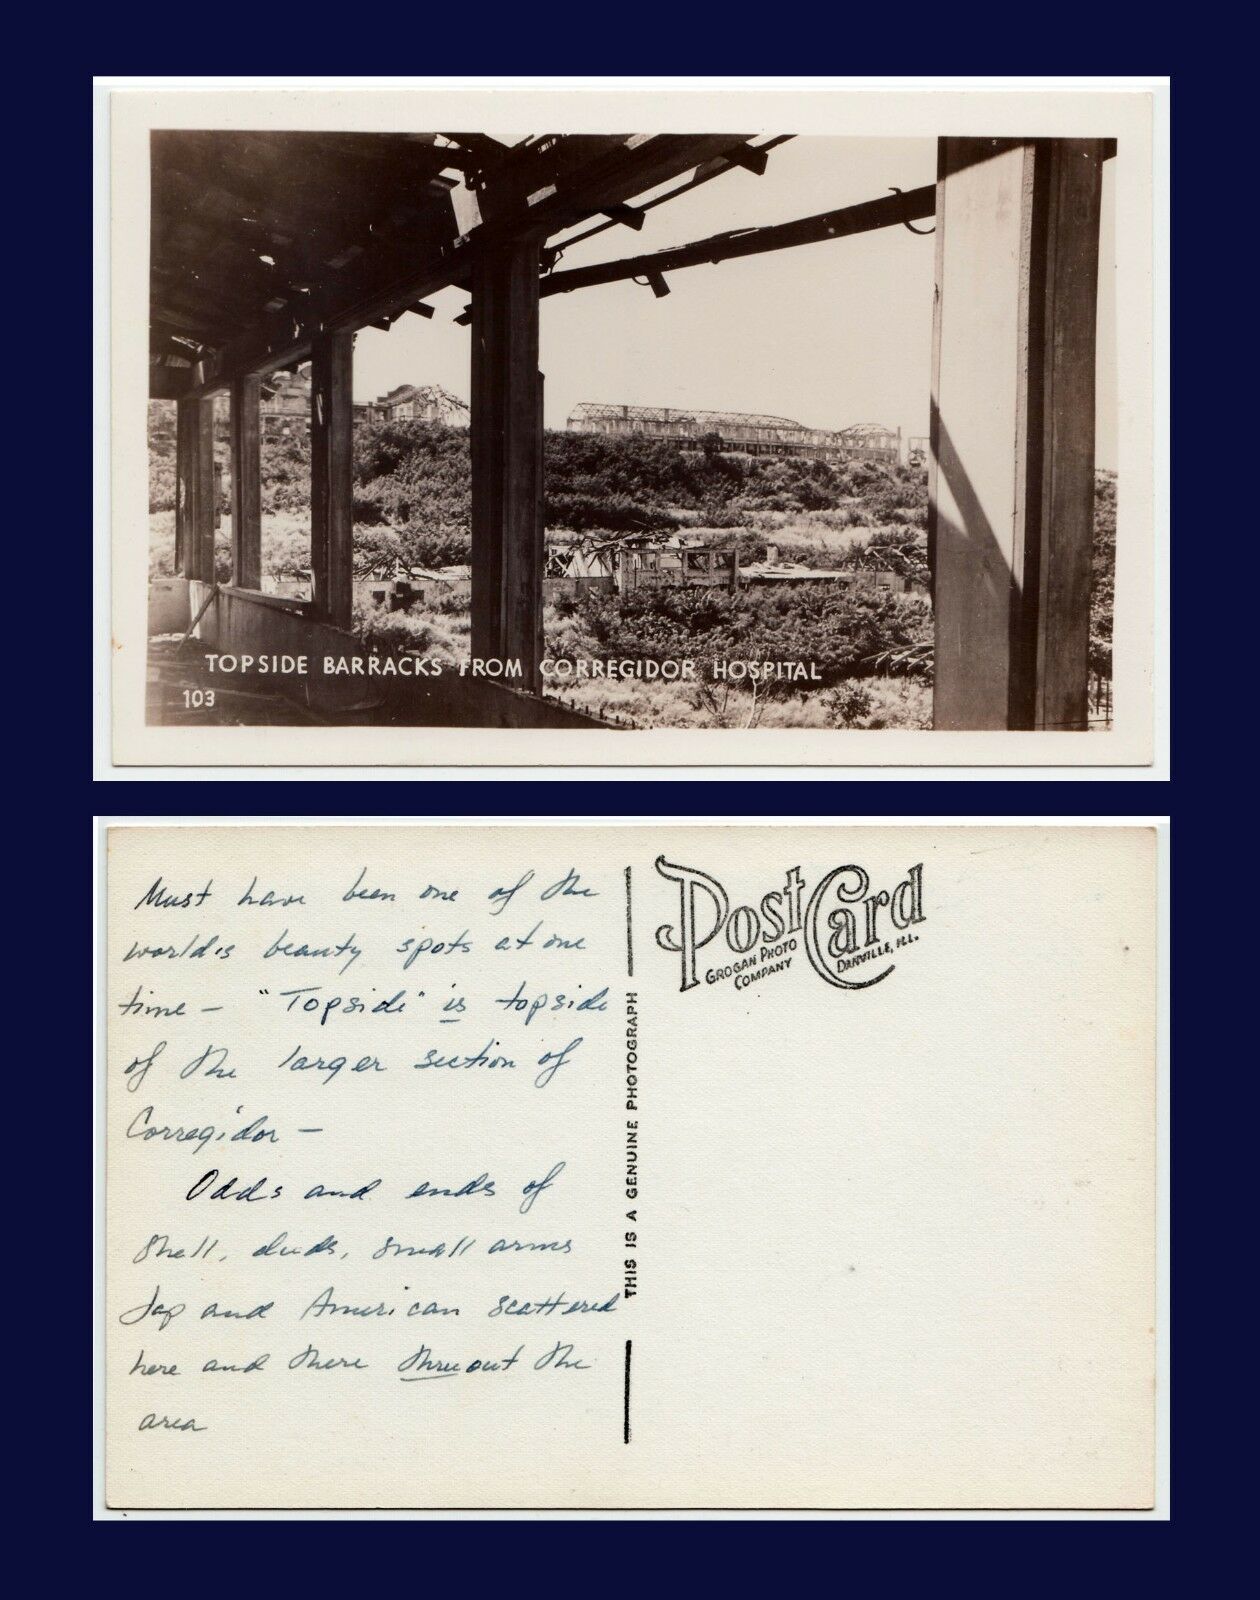 TOPSIDE BARRACKS FROM CORREGIDOR HOSPITAL
103
Must have been one of the
world's beauty spots at one
time — "Topside" is topside
of the larger section of
Corregidor —
Odds and ends of
shell, duds, small arms
Jap and American scattered
here and there thruout the
area
THIS IS A GENUINE PHOTOGRAPH
Post Card
GROGAN PHOTO
COMPANY
DANVILLE, ILL.